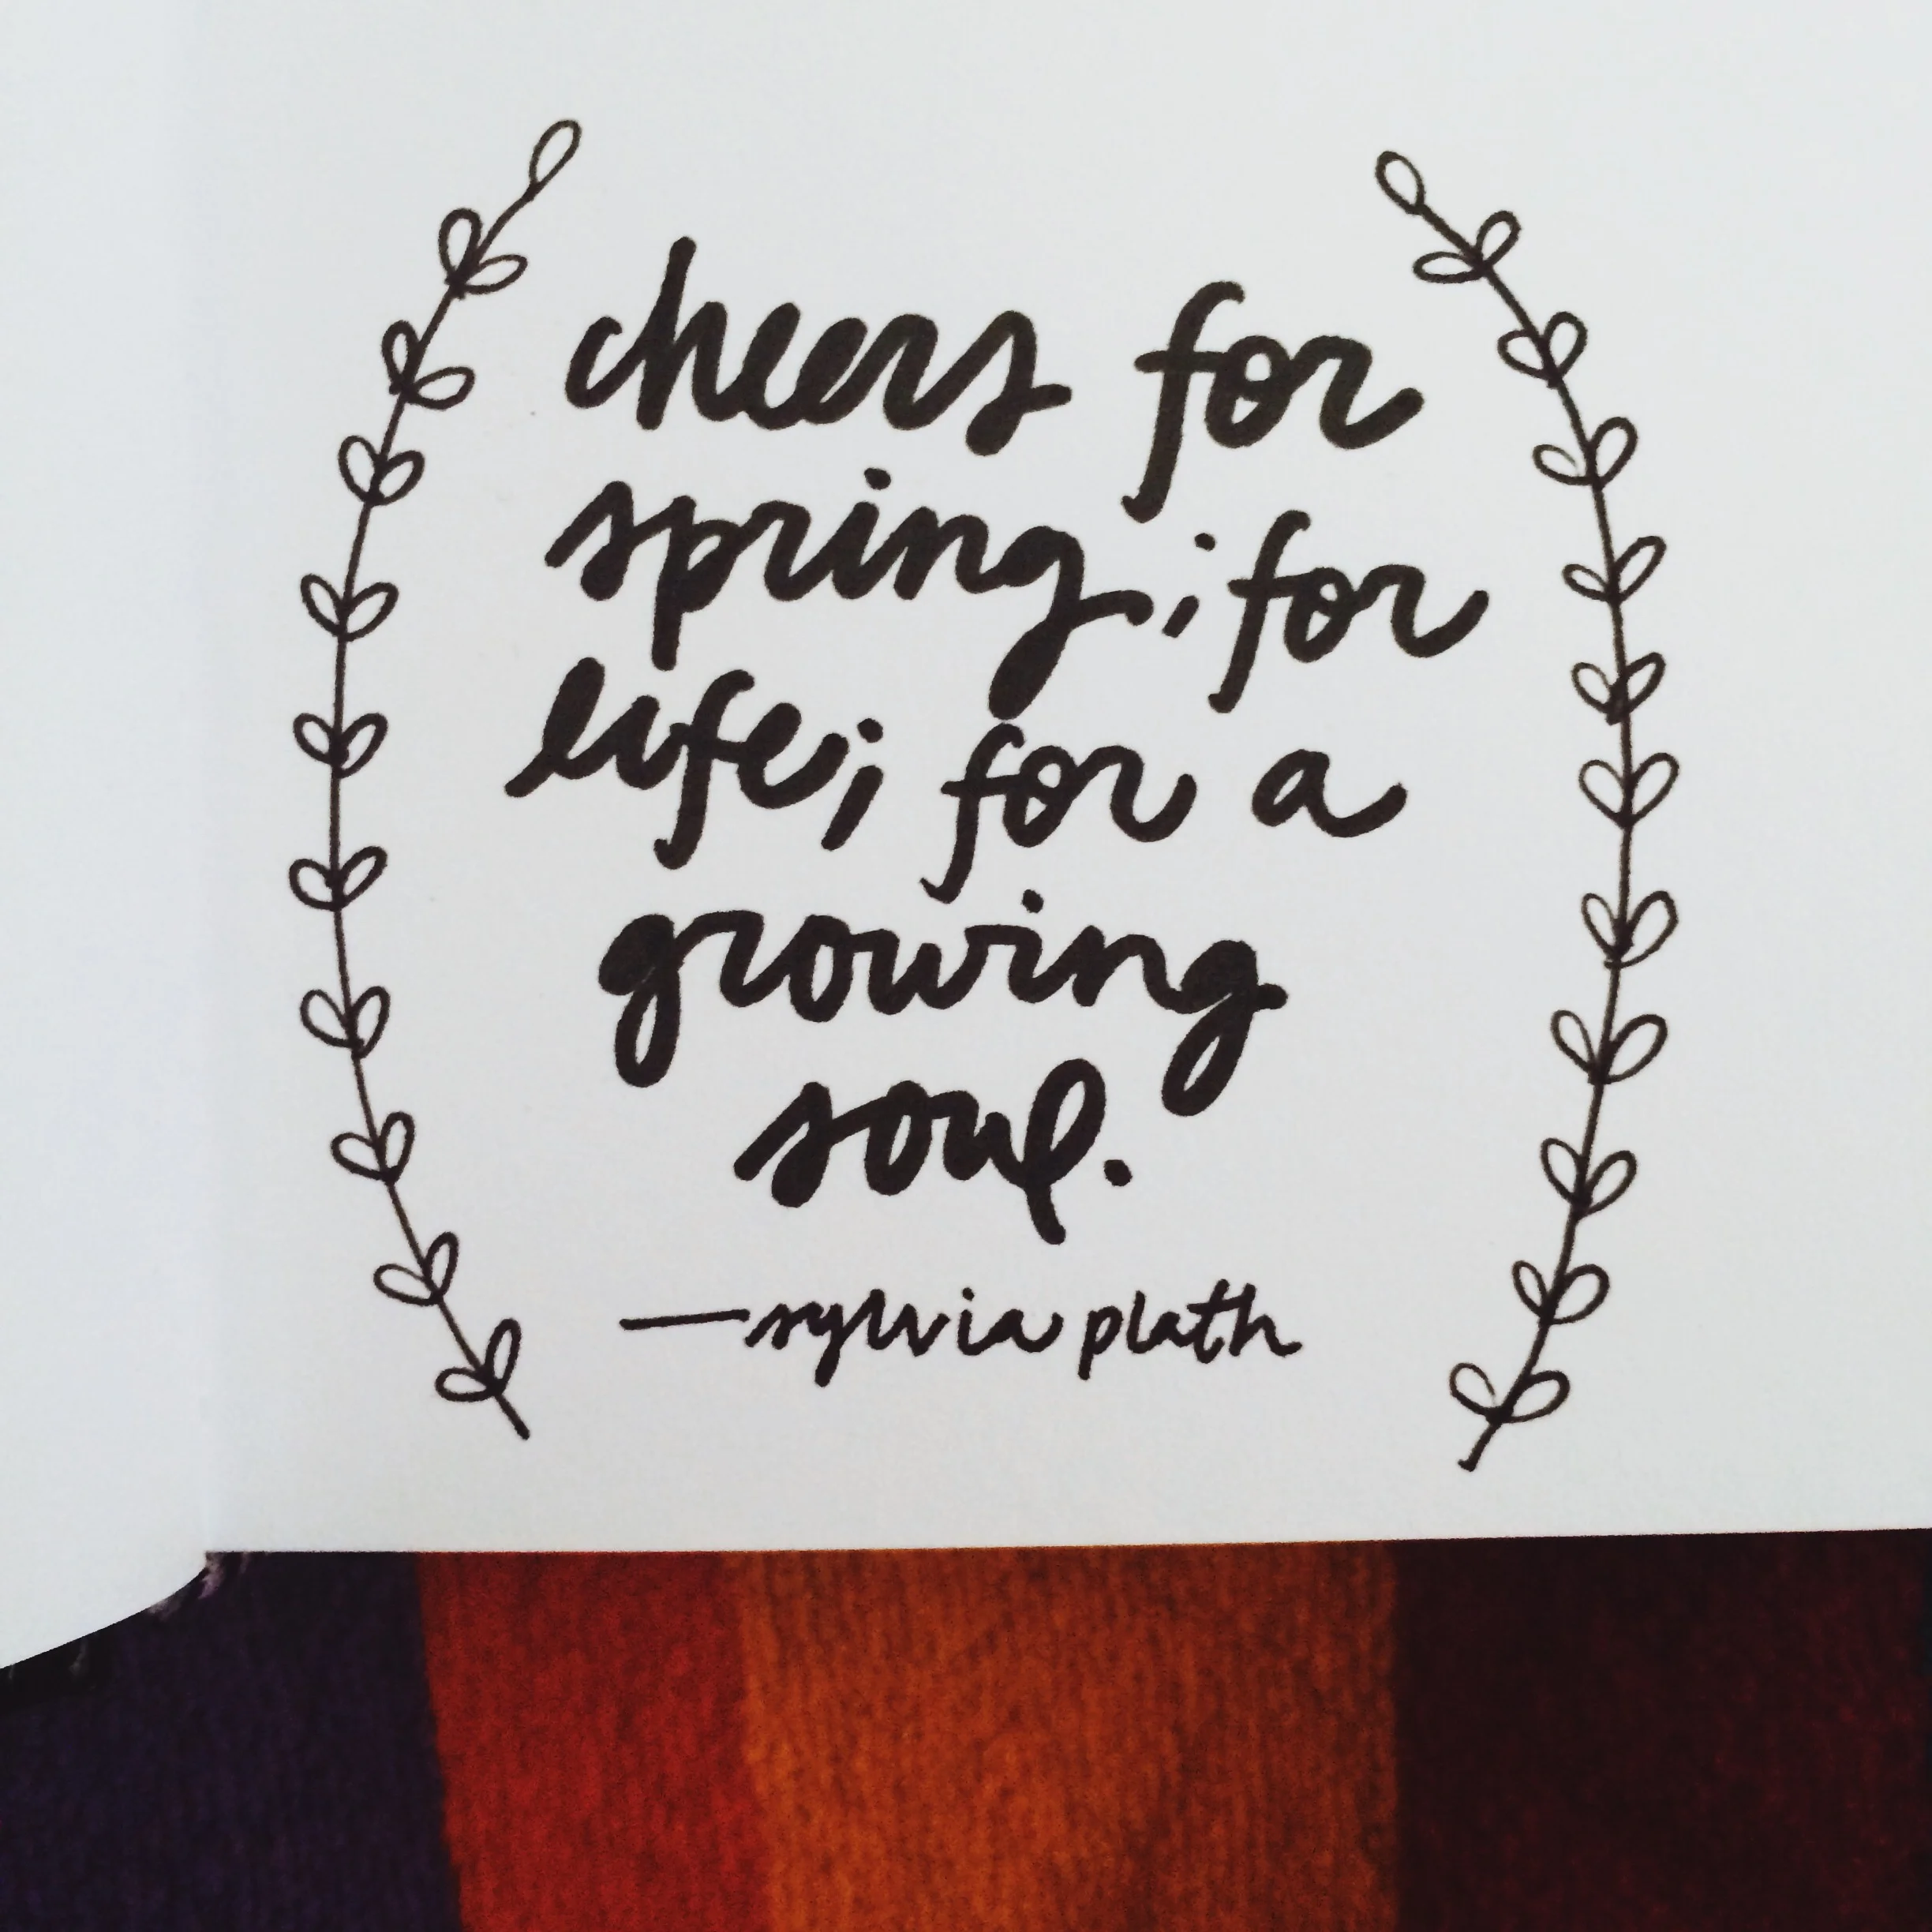 cheers for
spring; for
life; for a
growing
soul.
—sylvia plath